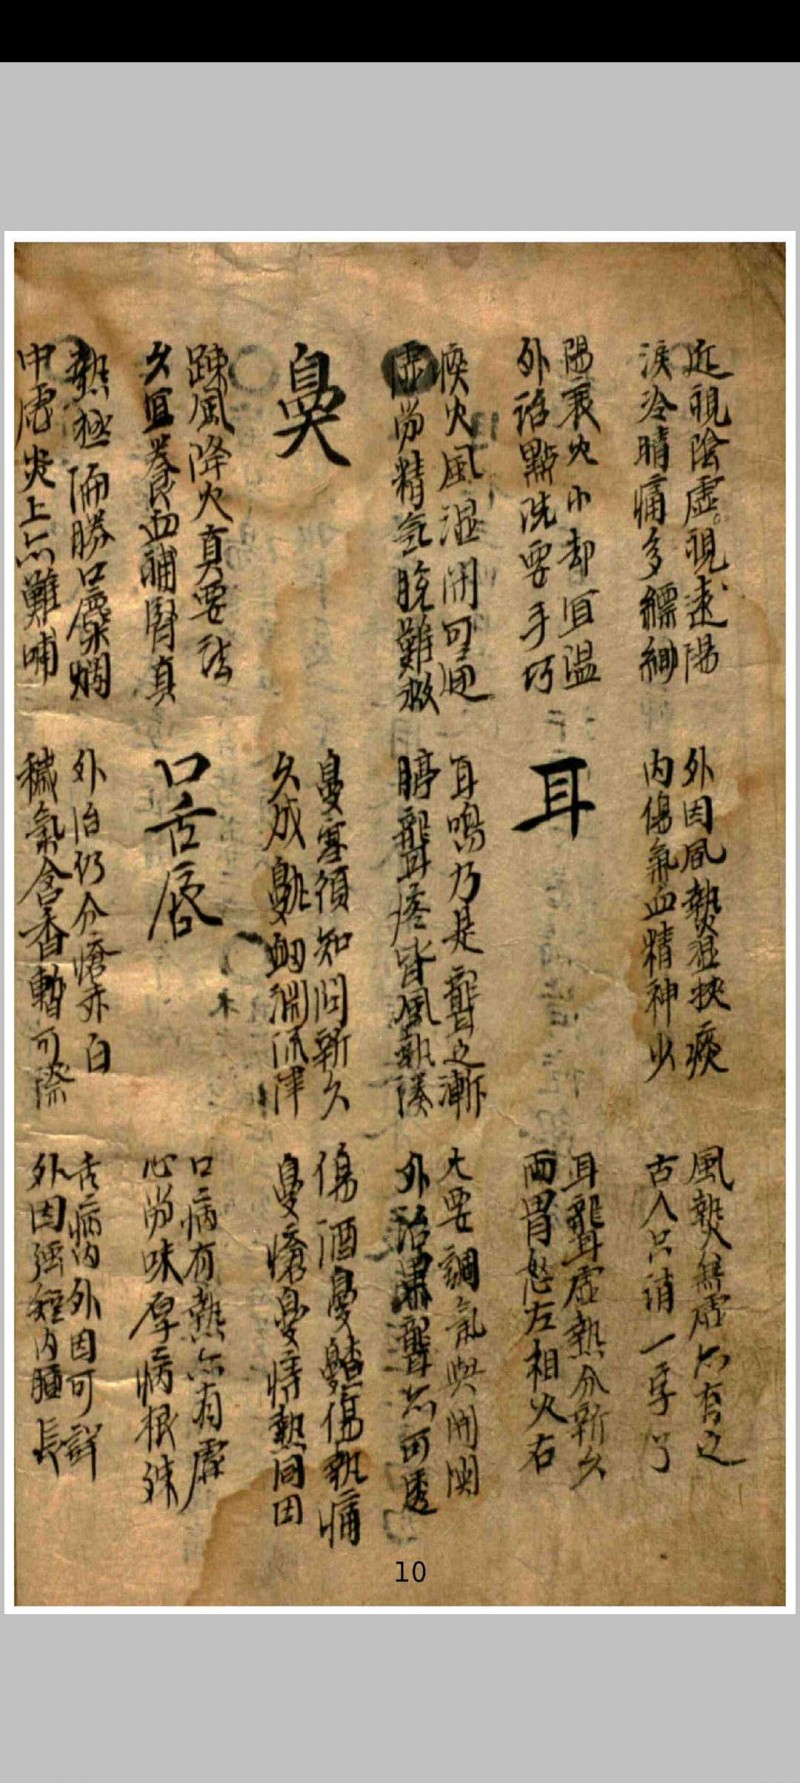 近視陰虛視遠陽
淚冷睛痛多縹緲
外因風熱濕挾痰
內傷氣血精神少
風熱無虛亦有之
古人只消一字了
陽衰火小却宜温
外治點洗要手巧
耳
耳聾虛熱分新久
兩胃怒左相火右
痰火風湿閉可通
虛勞精氣脫難救
耳鳴乃是聾之漸
聤聾疼皆風熱湊
大要調氣與開関
外治濕聾亦可透
鼻
鼻塞須知問新久
久成鼽衄渊流津
傷酒鼻齄傷熱痛
鼻瘡鼻痔熱同因
疎風降火真要法
久宜養血補腎真
口舌唇
口病有熱亦有虛
心勞味厚病根殊
熱極偏勝口糜爛
中虛炎上亦難哺
外治仍分瘡赤白
穢氣含香暫可除
舌病內外因可詳
外因強短內腫長
10